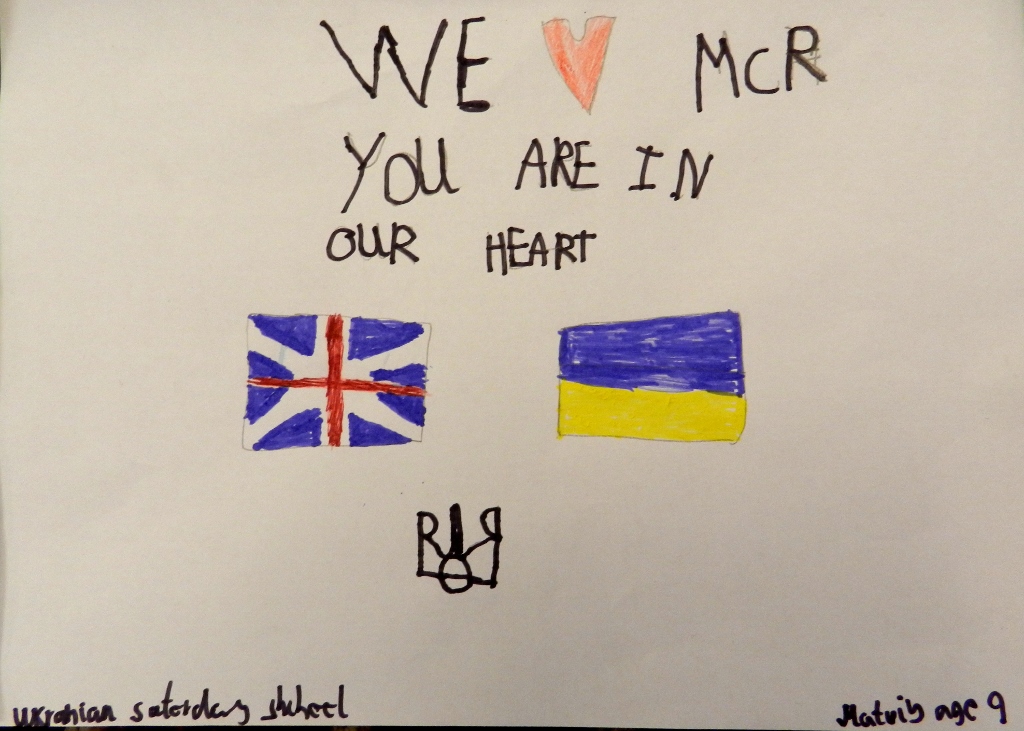 WE MCR
YOU ARE IN
OUR HEART
Ukranian saterday shcheel
Matviy age 9